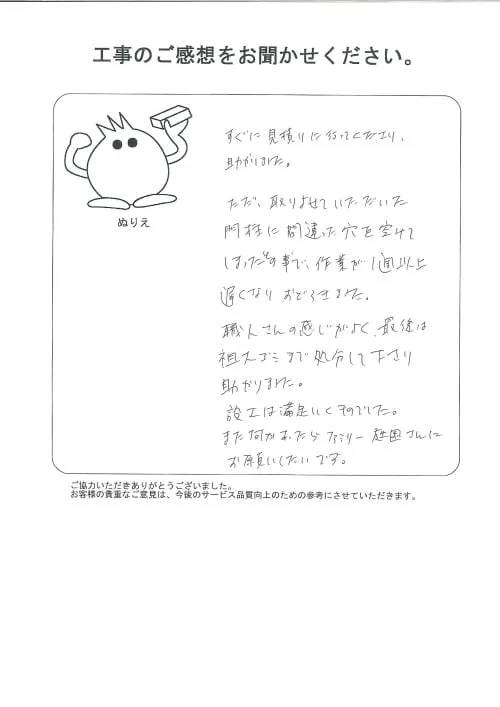 工事のご感想をお聞かせください。
ぬりえ
すぐに見積りに行ってくださり、
助かりました。
ただ、取りよせていただいた
門柱に間違った穴を空けて
しまったとの事で、作業が1週以上
遅くなりおどろきました。
職人さんの感じがよく、最後は
祖大ゴミまで処分して下さり
助かりました。
設工は満足いくものでした。
また何かあったらファミリー庭園さんに
お願いしたいです。
ご協力いただきありがとうございました。
お客様の貴重なご意見は、今後のサービス品質向上のための参考にさせていただきます。